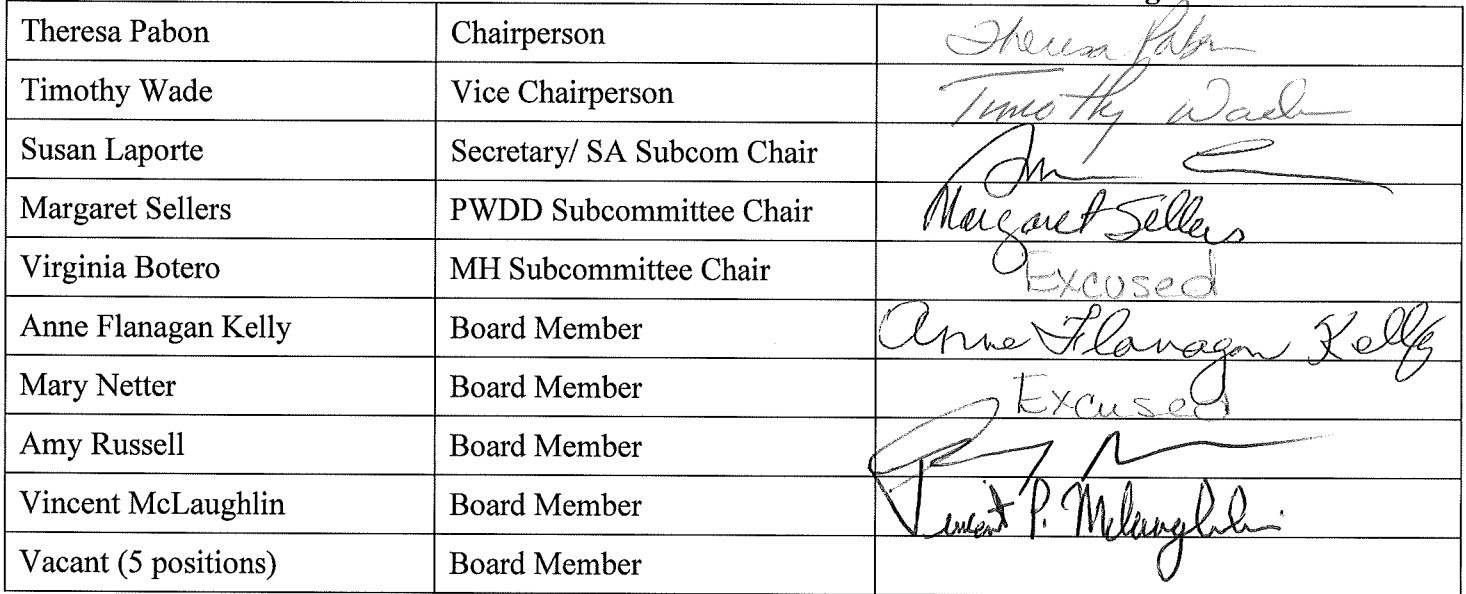 Theresa Pabon Chairperson Theresa Pabon
Timothy Wade Vice Chairperson Timothy Wade
Susan Laporte Secretary/ SA Subcom Chair
Margaret Sellers PWDD Subcommittee Chair Margaret Sellers
Virginia Botero MH Subcommittee Chair Excused
Anne Flanagan Kelly Board Member Anne Flanagan Kelly
Mary Netter Board Member Excused
Amy Russell Board Member
Vincent McLaughlin Board Member Vincent P. McLaughlin
Vacant (5 positions) Board Member